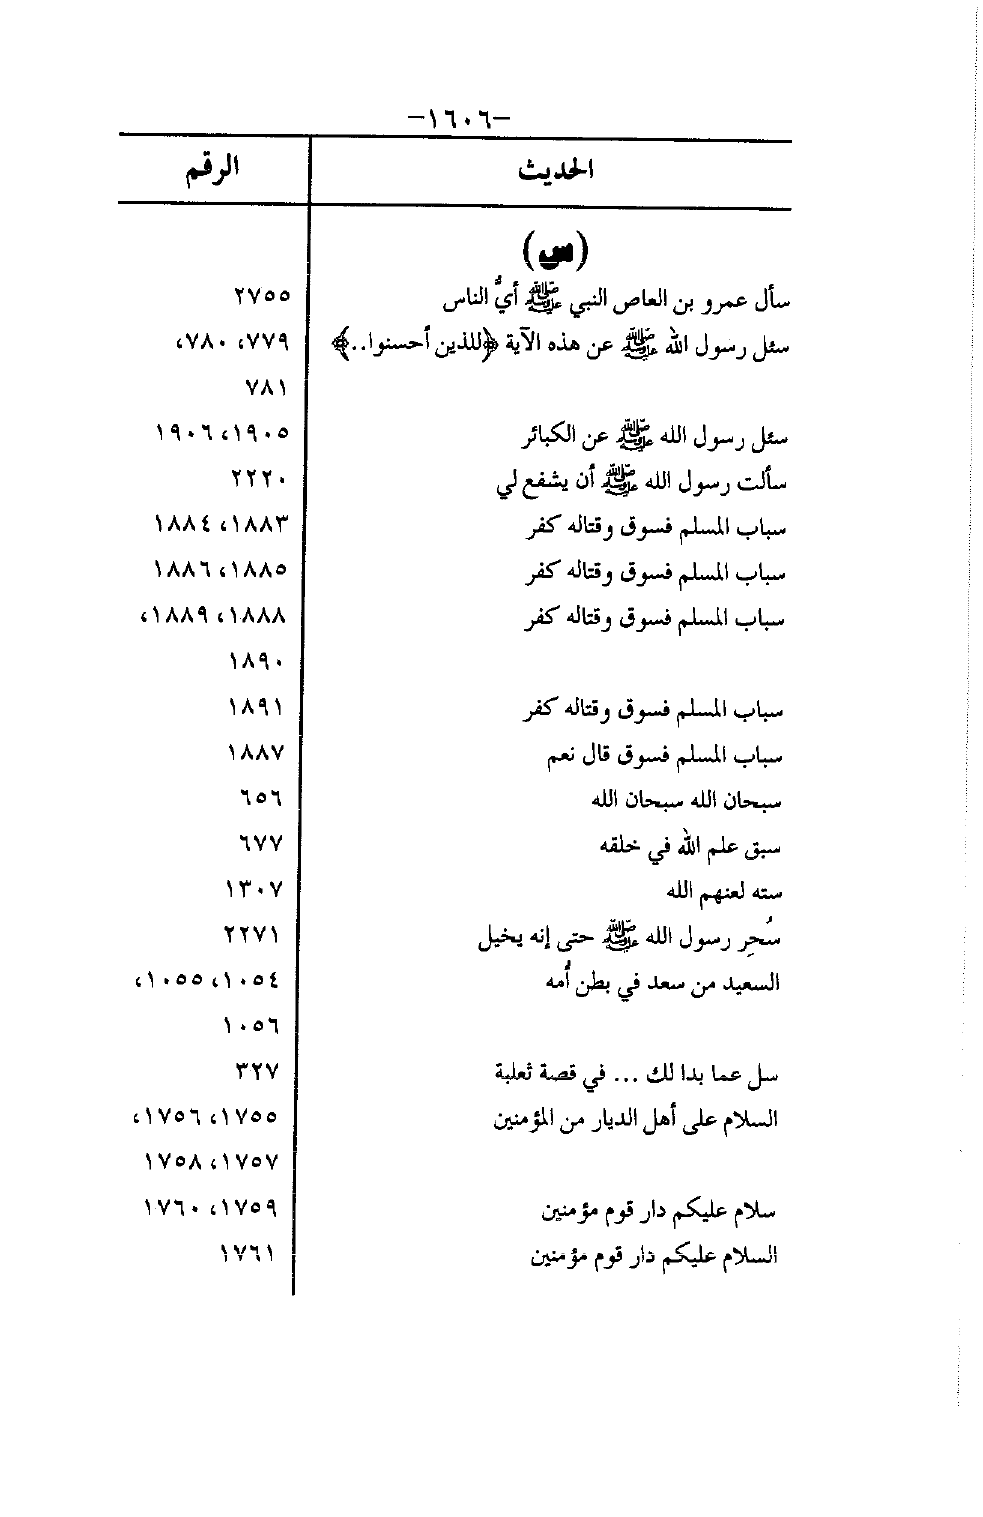 -١٦٠٦-
الحديث الرقم
(س)
سأل عمرو بن العاص النبي ﷺ أيُّ الناس ٢٧٥٥
سئل رسول الله ﷺ عن هذه الآية ﴿للذين أحسنوا..﴾ ٧٧٩، ٧٨٠،
٧٨١
سئل رسول الله ﷺ عن الكبائر ١٩٠٥، ١٩٠٦
سألت رسول الله ﷺ أن يشفع لي ٢٢٢٠
سباب المسلم فسوق وقتاله كفر ١٨٨٣، ١٨٨٤
سباب المسلم فسوق وقتاله كفر ١٨٨٥، ١٨٨٦
سباب المسلم فسوق وقتاله كفر ١٨٨٨، ١٨٨٩،
١٨٩٠
سباب المسلم فسوق وقتاله كفر ١٨٩١
سباب المسلم فسوق قال نعم ١٨٨٧
سبحان الله سبحان الله ٦٥٦
سبق علم الله في خلقه ٦٧٧
سته لعنهم الله ١٣٠٧
سُحِر رسول الله ﷺ حتى إنه يخيل ٢٢٧١
السعيد من سعد في بطن أُمه ١٠٥٤، ١٠٥٥،
١٠٥٦
سل عما بدا لك ... في قصة ثعلبة ٣٢٧
السلام على أهل الديار من المؤمنين ١٧٥٥، ١٧٥٦،
١٧٥٧، ١٧٥٨
سلام عليكم دار قوم مؤمنين ١٧٥٩، ١٧٦٠
السلام عليكم دار قوم مؤمنين ١٧٦١